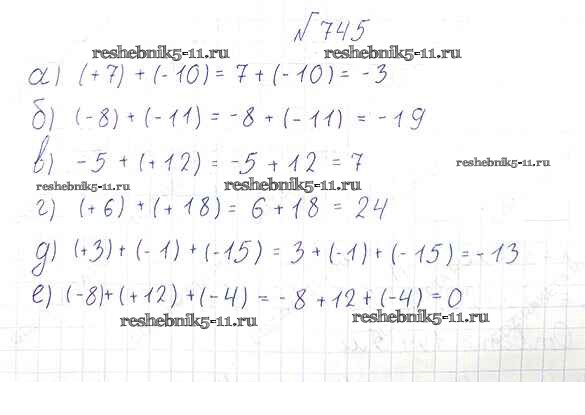 № 745
reshebnik5-11.ru reshebnik5-11.ru
а) (+7) + (-10) = 7 + (-10) = -3
б) (-8) + (-11) = -8 + (-11) = -19
в) -5 + (+12) = -5 + 12 = 7
reshebnik5-11.ru
reshebnik5-11.ru reshebnik5-11.ru
г) (+6) + (+18) = 6 + 18 = 24
д) (+3) + (-1) + (-15) = 3 + (-1) + (-15) = -13
е) (-8) + (+12) + (-4) = -8 + 12 + (-4) = 0
reshebnik5-11.ru reshebnik5-11.ru